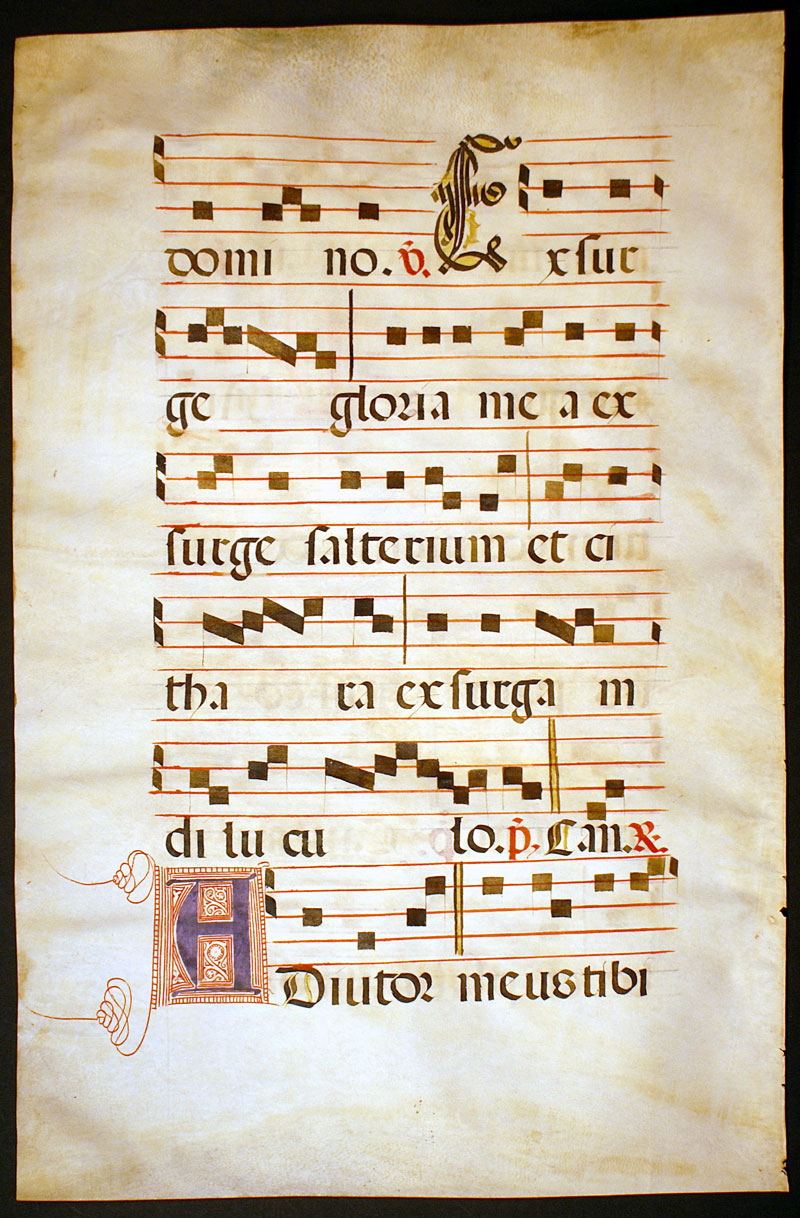 domi no. v. Exsur
ge gloria me a ex
surge salterium et ci
tha ra exsurga m
di lu cu lo. p. Can. R.
ADiutor meus tibi